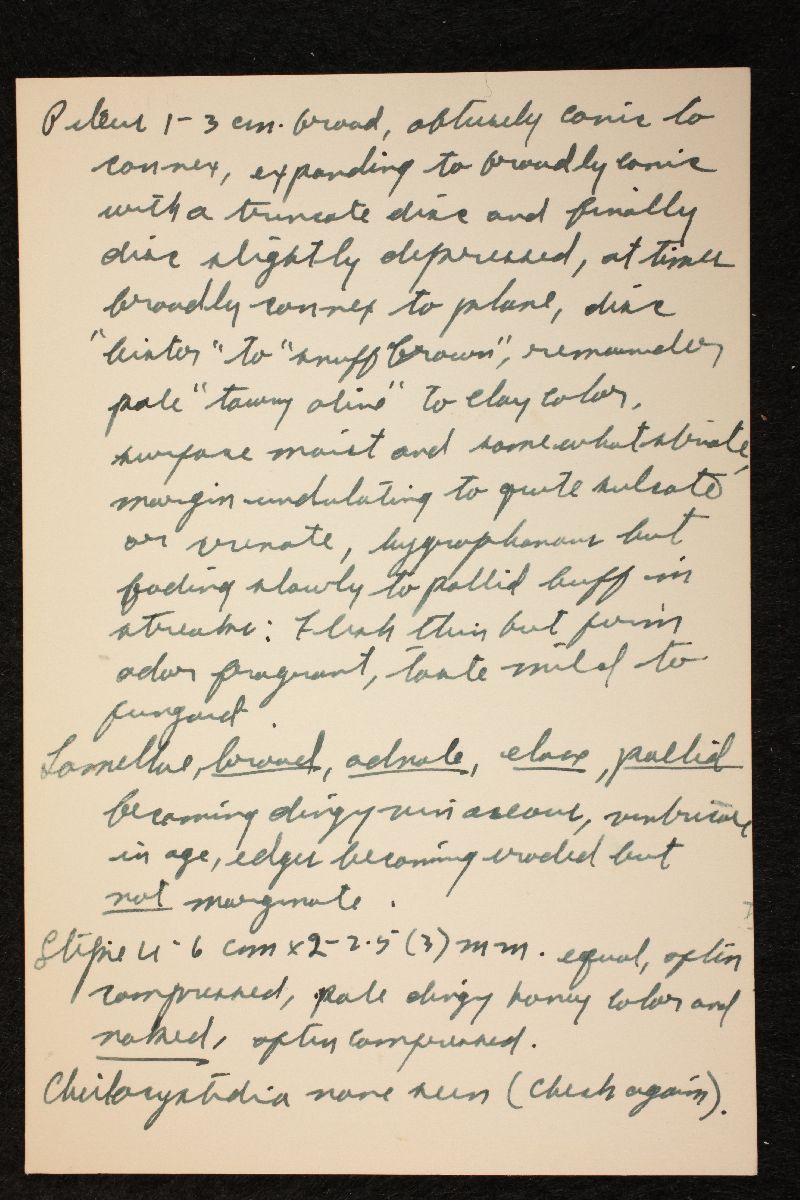 Pileus 1-3 cm. broad, obtusely conic to
convex, expanding to broadly conic
with a truncate disc and finally
disc slightly depressed, at times
broadly convex to plane, disc
"bister" to "snuff brown", remainder
pale "tawny olive" to clay color,
surface moist and somewhat striate,
margin undulating to quite sulcate
or crenate, hygrophanous but
fading slowly to pallid buff in
streaks: Flesh thin but firm
odor fragrant, taste mild to
fungoid.
Lamellae, broad, adnate, close, pallid
becoming dingy vinaceous, ventricose
in age, edges becoming eroded but
not marginate.
Stipe 4-6 cm x 2-2.5 (3) mm. equal, often
compressed, pale dingy honey color and
naked, often compressed.
Cheilocystidia none seen (check again).